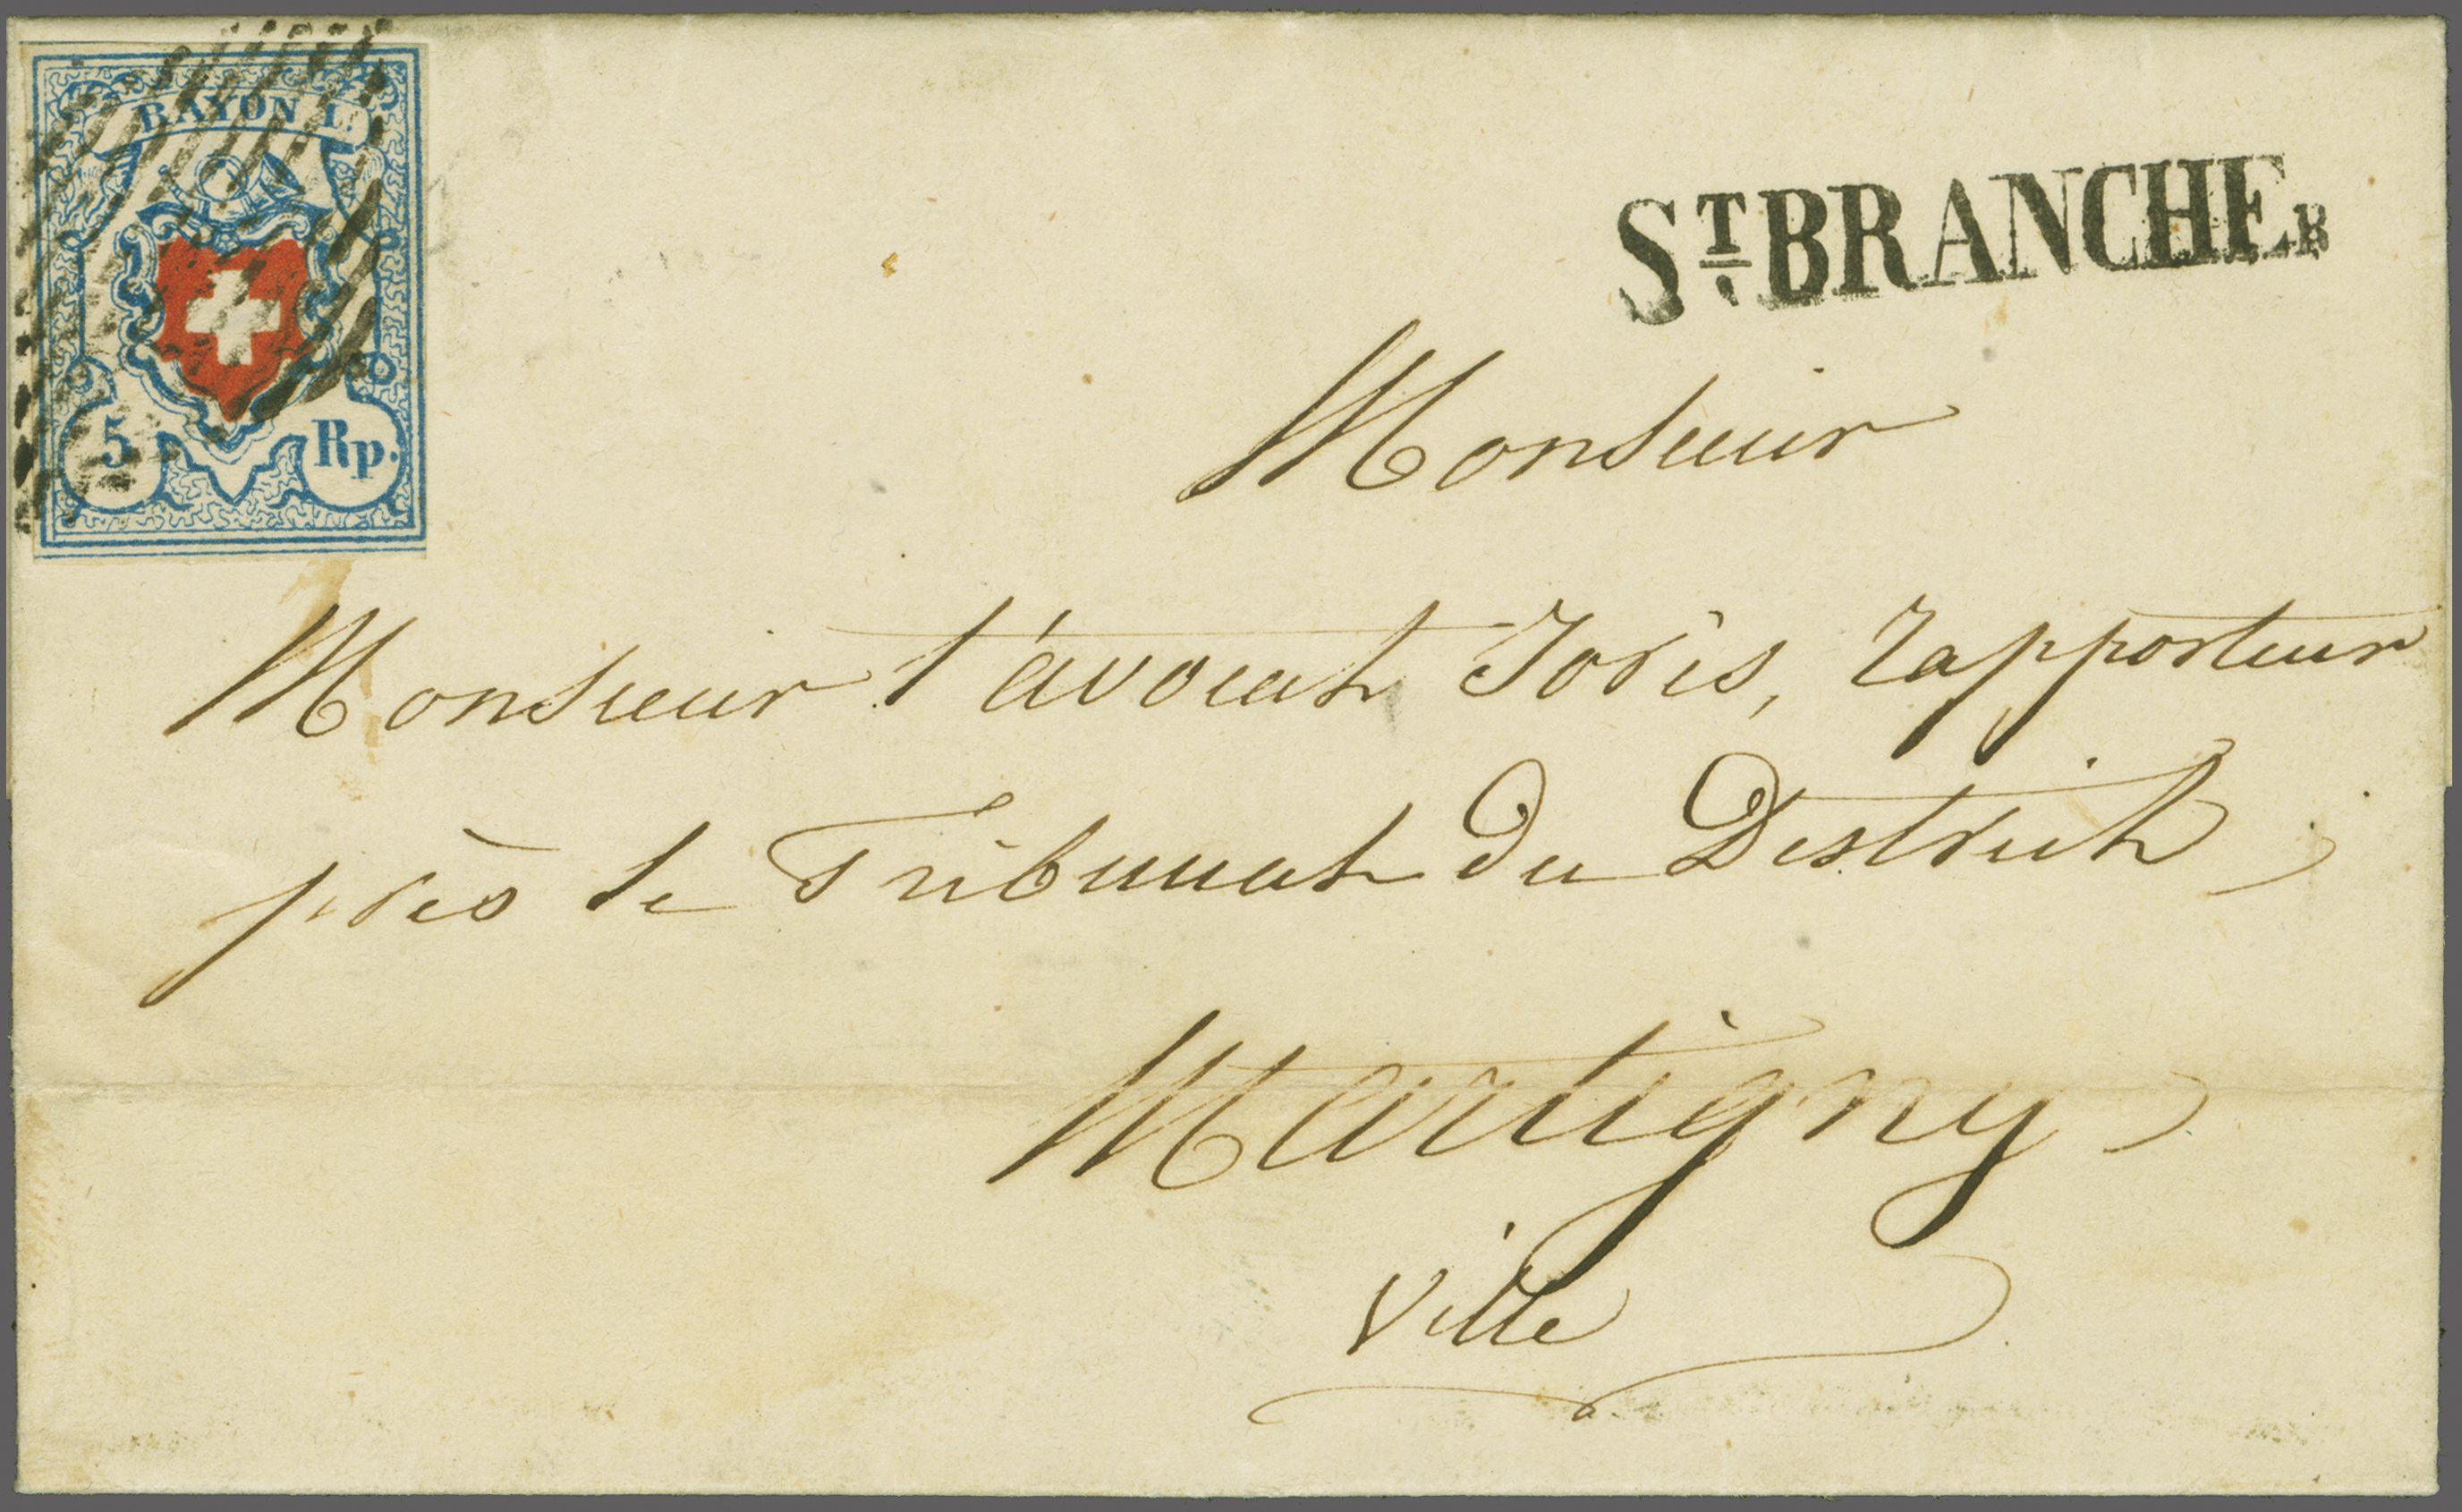 RAYON I.
5 Rp.
ST BRANCHER
Monsieur
Monsieur l'avocat Joris, rapporteur
près le Tribunal du District
Martigny
Ville